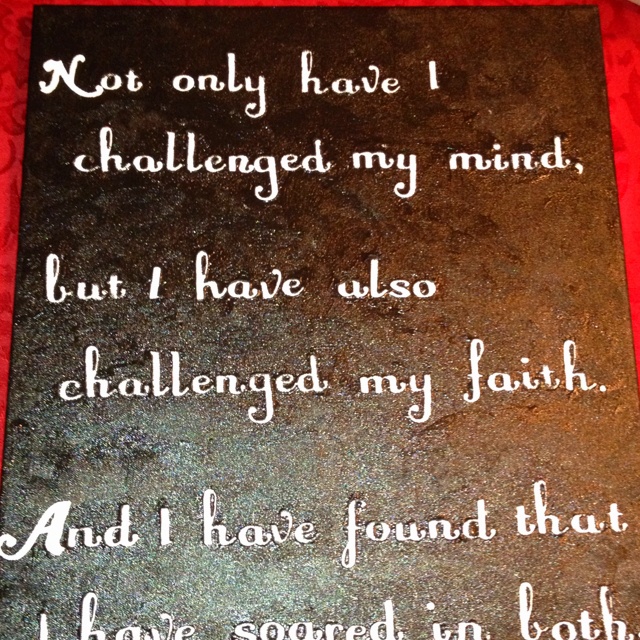 Not only have I
challenged my mind,
but I have also
challenged my faith.
And I have found that
I have soared in both